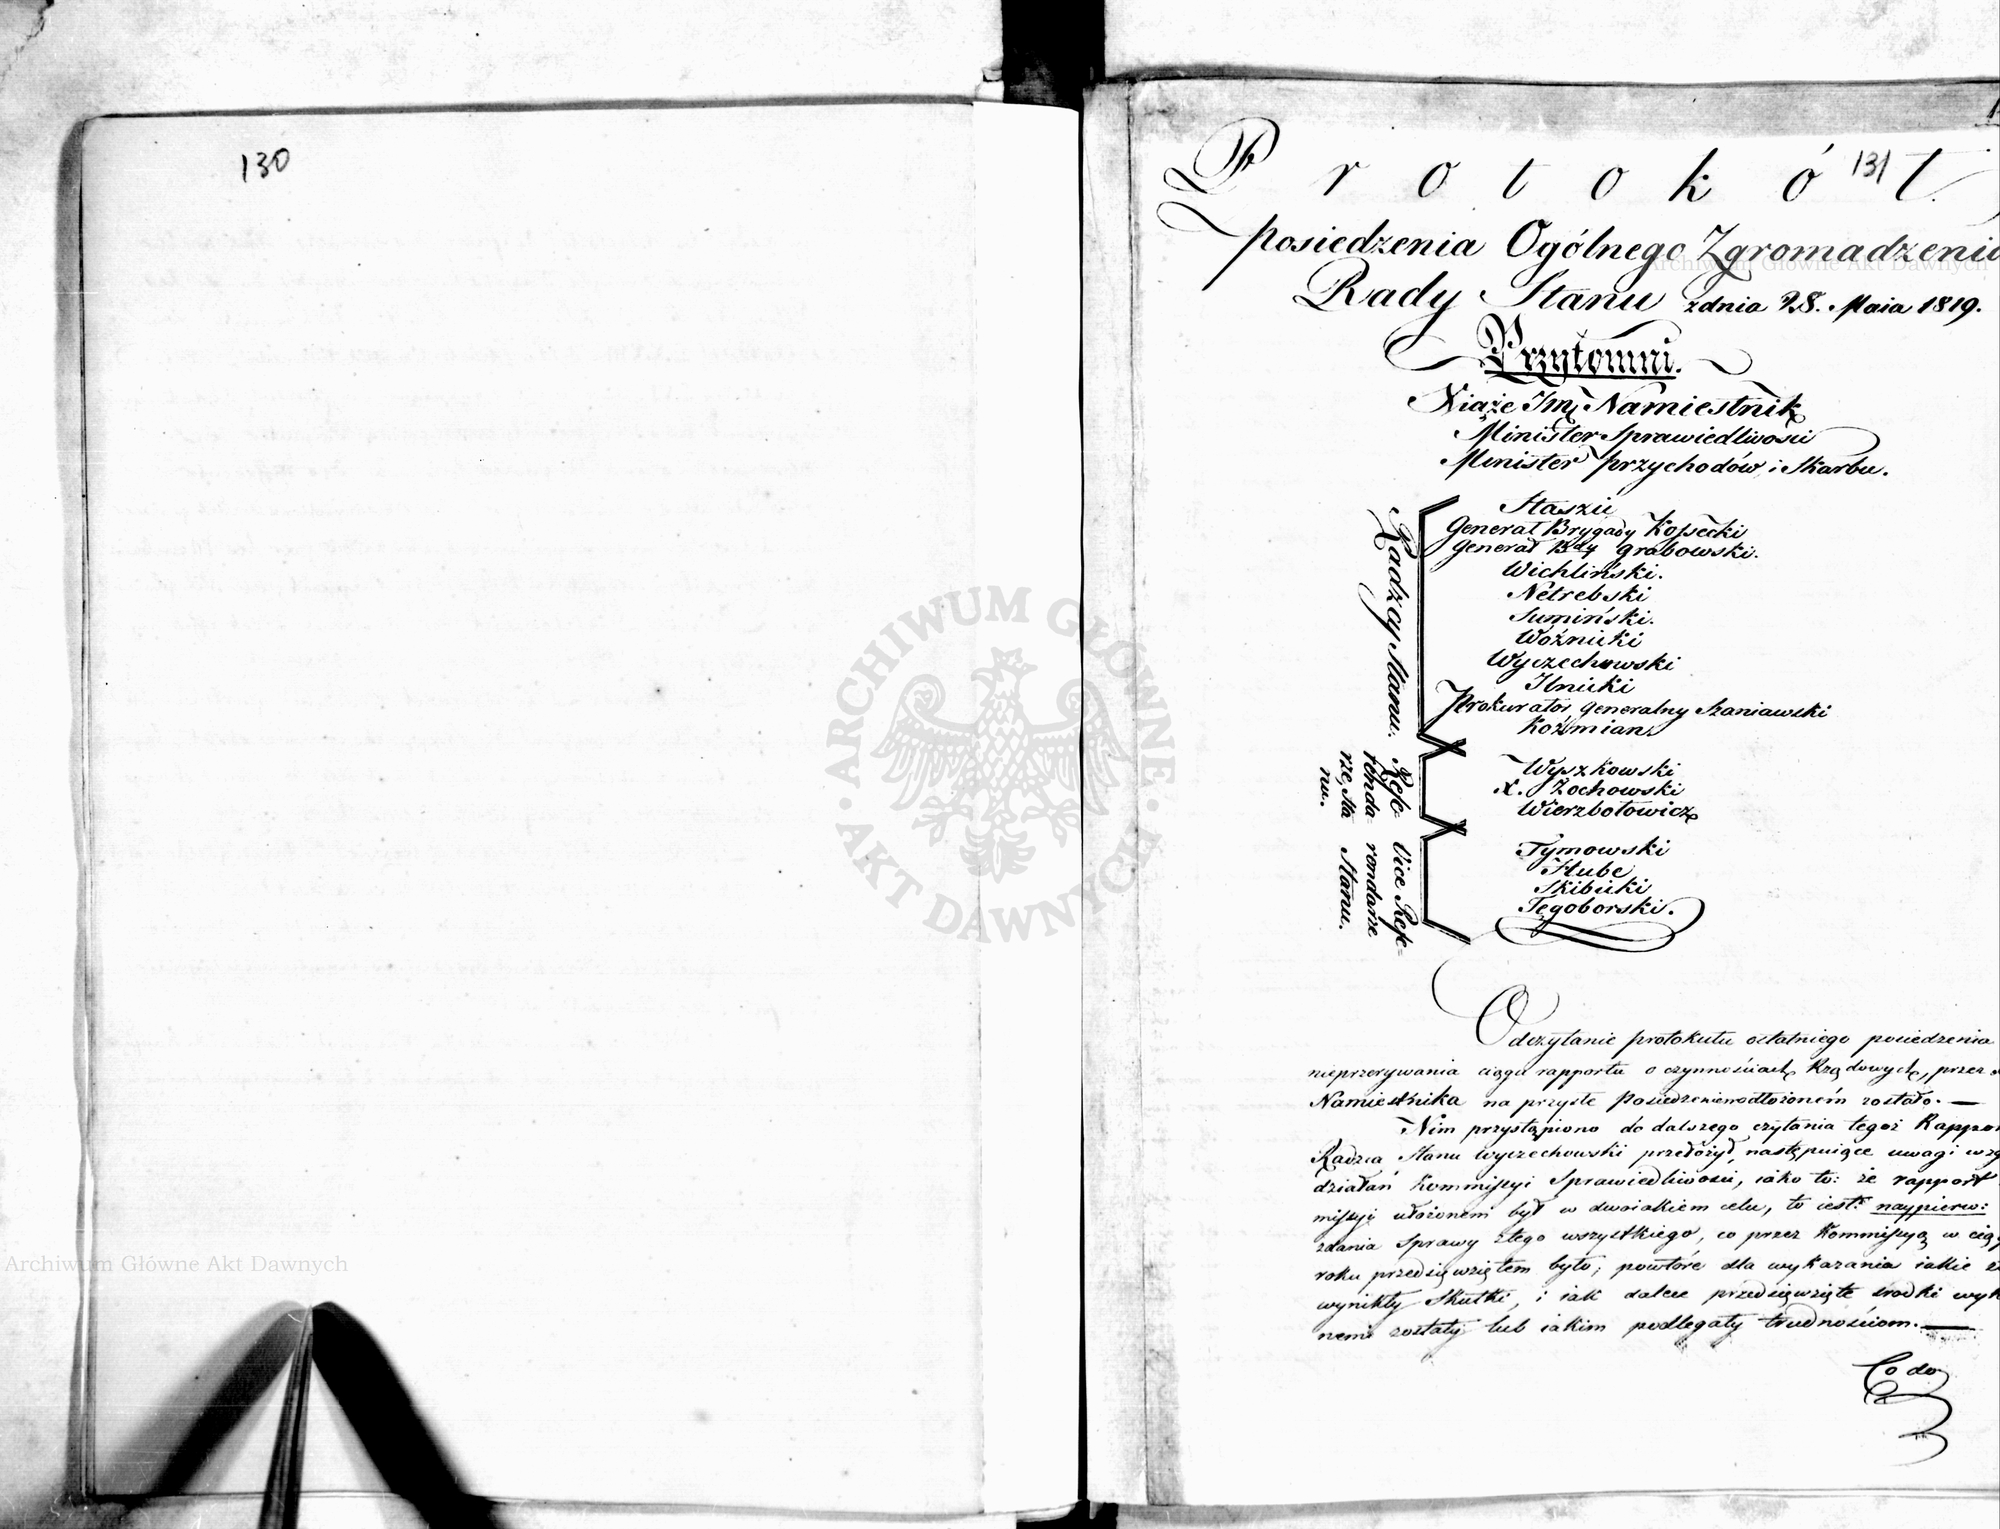 130
131
Protokół
posiedzenia Ogólnego Zgromadzenia
Rady Stanu z dnia 28. Maia 1819.
Przytomni.
Xiąże Jmć Namiestnik
Minister Sprawiedliwości
Minister przychodów i Skarbu.
Radzcy Stanu.
Staszic
Generał Brygady Kossecki
Generał Bdy Grabowski.
Wichliński.
Netrebski
Sumiński.
Woźnicki
Wyczechowski
Ilnicki
Prokurator Generalny Szaniawski
Koźmian.
Refe-
renda-
rze Sta
nu.
Wyszkowski
X. Żochowski
Wierzbołowicz
Vice Refe=
rendarze
Stanu.
Tymowski
Hube
Skibicki
Tęgoborski.
Odczytanie protokułu ostatniego posiedzenia
nieprzerywania ciągu rapportu o czynnościach Rządowych, przez
Namiestnika na przyszłe Posiedzenie odłożonem zostało. —
Nim przystąpiono do dalszego czytania tegoż Rappor
Radzca Stanu Wyczechowski przełożył następuiące uwagi wzg
działań Kommissyi Sprawiedliwości, iako to: że rapport
missyi ułożonem był w dwoiakiem celu, to iest: naypierw:
zdania sprawy z tego wszystkiego, co przez Kommissyą w ciąg
roku przedsięwziętem było; powtóre dla wykazania iakie
wynikły skutki, i iak dalece przedsięwzięte środki wyk
nemi zostały lub iakim podlegały trudnościom. —
Co do
Archiwum Główne Akt Dawnych
Archiwum Główne Akt Dawnych
ARCHIWUM GŁÓWNE
AKT DAWNYCH